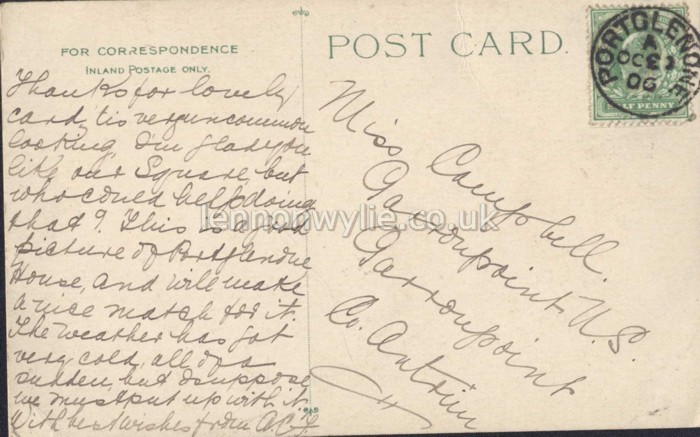 FOR CORRESPONDENCE
INLAND POSTAGE ONLY.
POST CARD.
PORTGLENONE
A
OC
06
HALFPENNY
Thanks for lovely
card, tis very uncommon
looking. I'm glad you
like our Square, but
who could help doing
that? This is a good
picture of Portglenone
House, and will make
a nice match for it.
The weather has got
very cold, all of a
sudden, but I suppose
we must put up with it.
With best wishes from
Miss Campbell.
Garronpoint N.S.
Garronpoint
Co. Antrim
lennonwylie.co.uk